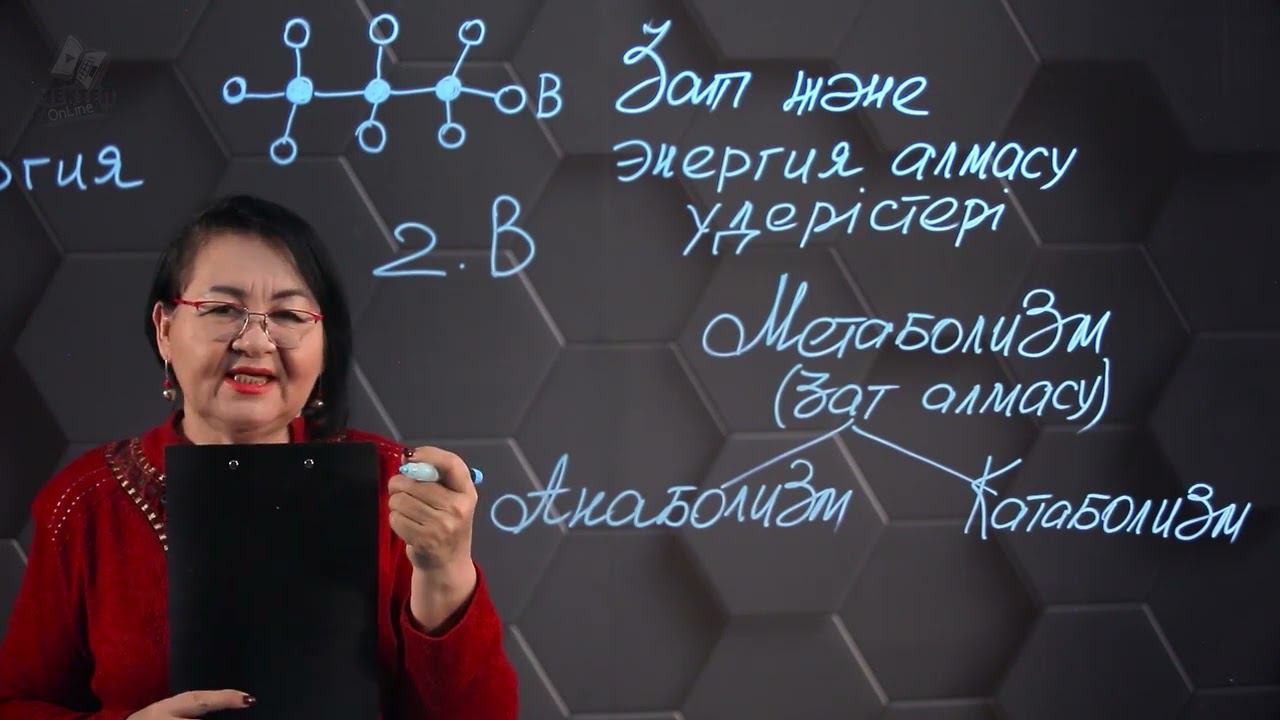 OnLine
В
Зат және
энергия алмасу
үдерістері
2. В
Метаболизм
(Зат алмасу)
Анаболизм
Катаболизм